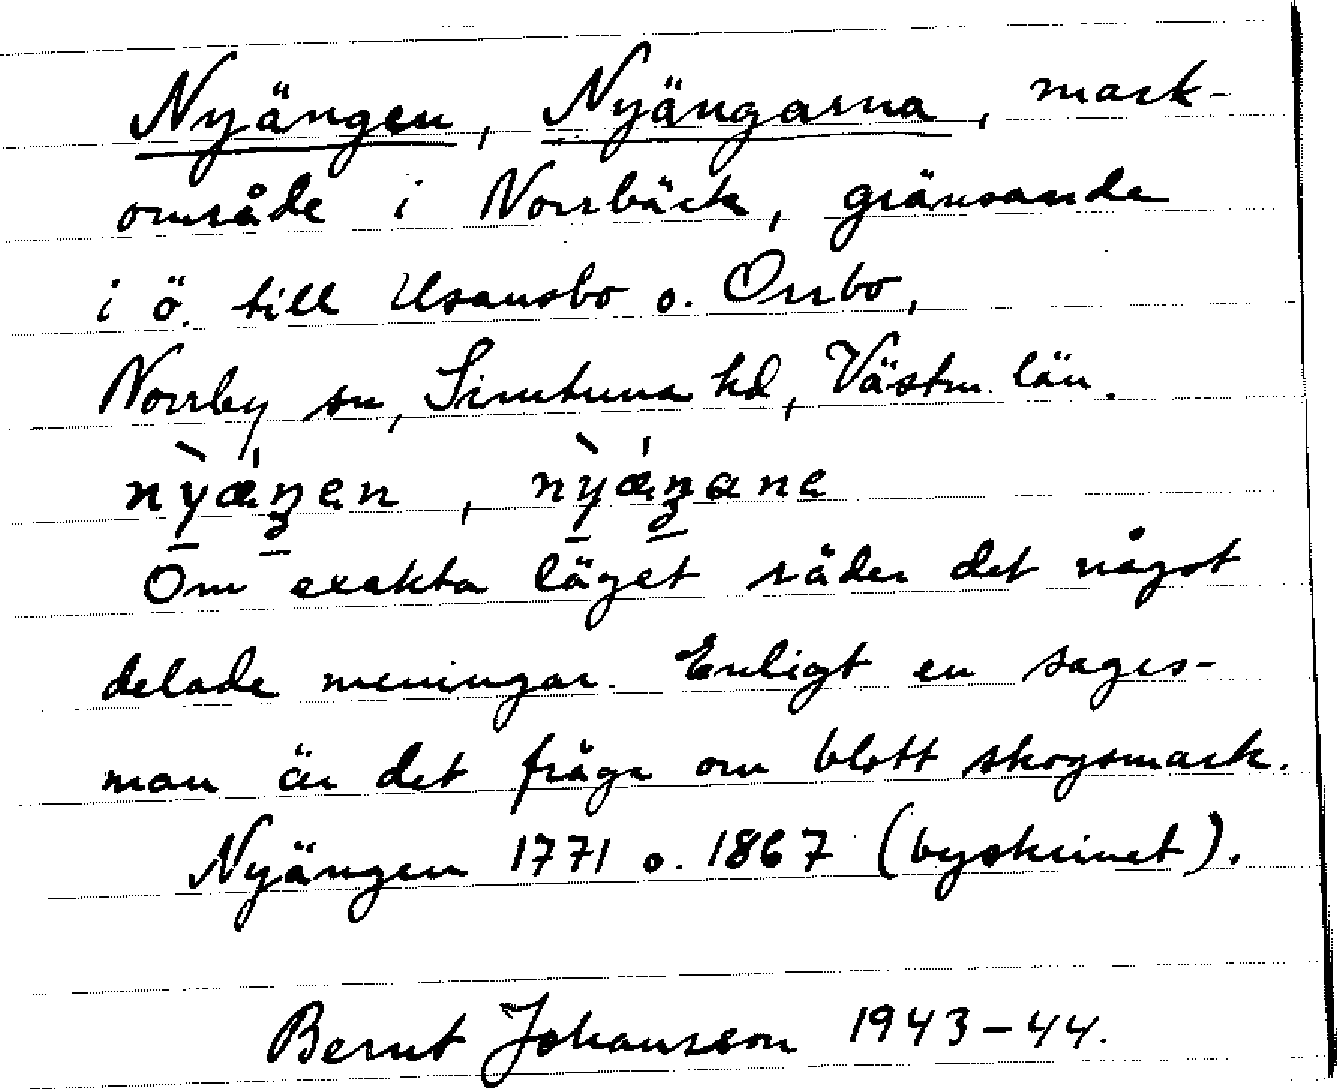 Nyängen, Nyängarna, mark-
område i Norrbäck, gränsande
i ö. till Usansbo o. Orrbo,
Norrby sn, Simtuna hd, Västm. län.
nỳǽŋen, nỳǽŋane
Om exakta läget råder det något
delade meningar. Enligt en sages-
man är det fråga om blott skogsmark.
Nyängen 1771 o. 1867 (byskrinet).
Bernt Johansson 1943-44.